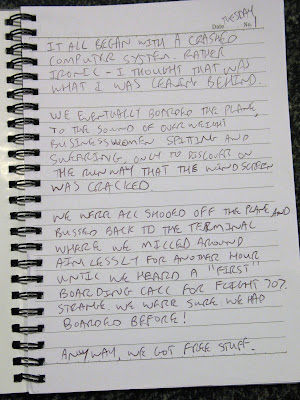 Date TUESDAY No. 1
IT ALL BEGAN WITH A CRASHED
COMPUTER SYSTEM. RATHER
IRONIC - I THOUGHT THAT WAS
WHAT I WAS LEAVING BEHIND.
WE EVENTUALLY BOARDED THE PLANE,
TO THE SOUND OF OVERWEIGHT
BUSINESSWOMEN SPITTING AND
SWEARING, ONLY TO DISCOVER ON
THE RUNWAY THAT THE WINDSCREEN
WAS CRACKED.
WE WERE ALL SHOOED OFF THE PLANE AND
BUSSED BACK TO THE TERMINAL
WHERE WE MILLED AROUND
AIMLESSLY FOR ANOTHER HOUR
UNTIL WE HEARD A "FIRST"
BOARDING CALL FOR FLIGHT 707.
STRANGE. WE WERE SURE WE HAD
BOARDED BEFORE!
ANYWAY, WE GOT FREE STUFF.